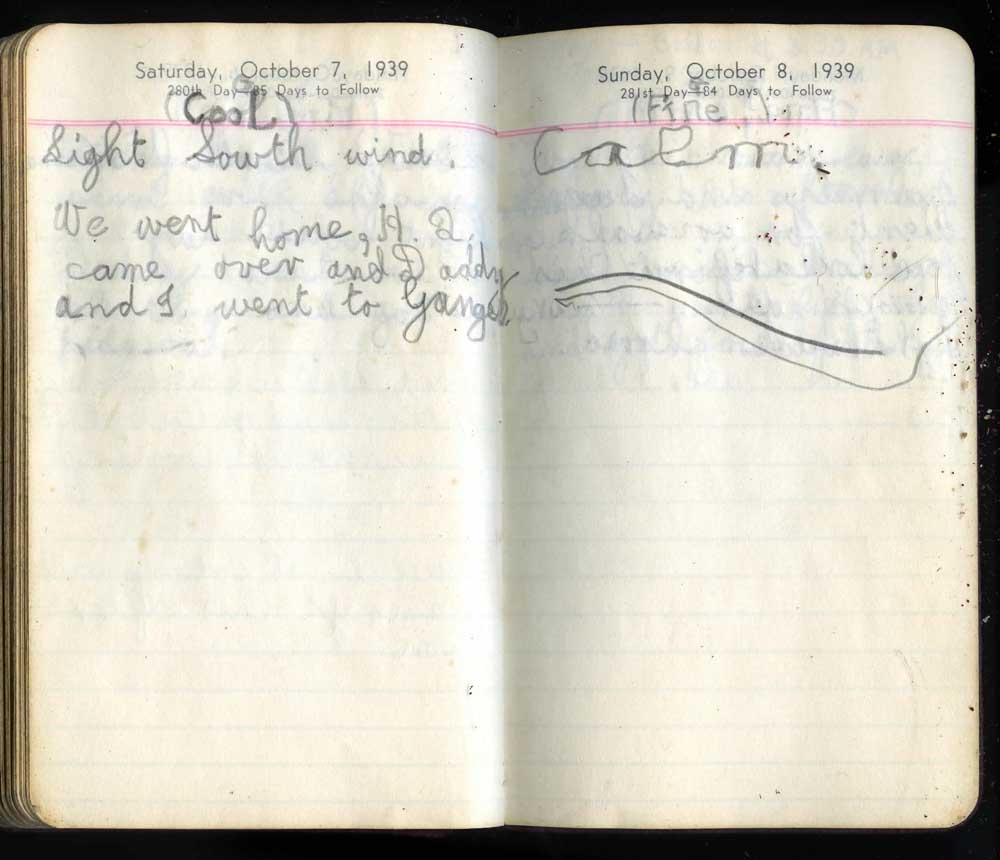 Saturday, October 7, 1939
280th Day—85 Days to Follow
(Cool)
Light South wind.
We went home, H. D.
came over and Daddy
and I went to
Sunday, October 8, 1939
281st Day—84 Days to Follow
(Fine)
Calm.